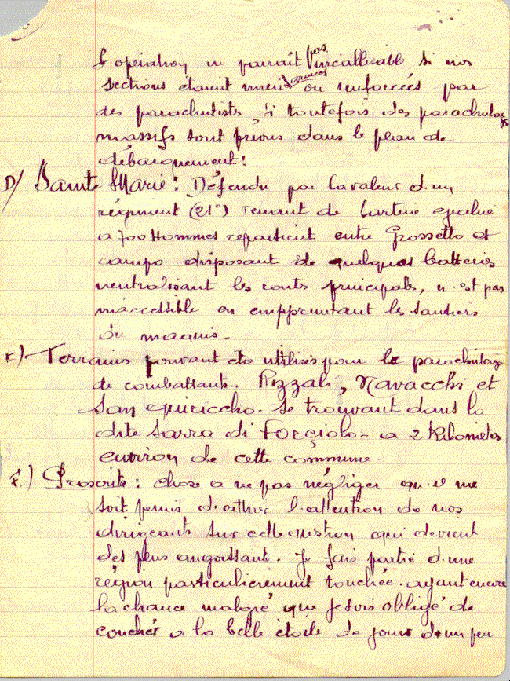 L'opération ne parait pas irréalisable si nos
sections étaient ou renforcées par
des parachutistes, si toutefois des parachutages
massifs sont prévus dans le plan de
débarquement:
D/ Sainte Marie: Défendu par la valeur d'un
régiment (21e) venant de
a 700 Hommes entre Grossetto et
campo disposant de quelques batteries
neutralisant les routes principales, n'est pas
inaccessible en empruntant les sentiers
du maquis-
E)- Terrains pouvant être utilisés pour le parachutage
de combattants. Pizzali, Navacchi et
San quiriccho. Se trouvant dans la
dite Sarra di Forciolo- a 2 Kilometres
environ de cette commune
F.) Proscrits: chose a ne pas négliger qu'il me
soit permis d'attirer l'attention de nos
dirigeants sur cette question qui devient
des plus angoissant. Je fais partie d'une
région particulièrement touchée. ayant encore
la chance malgré que je sois obligé de
coucher a la belle étoile de jouir d'un peu